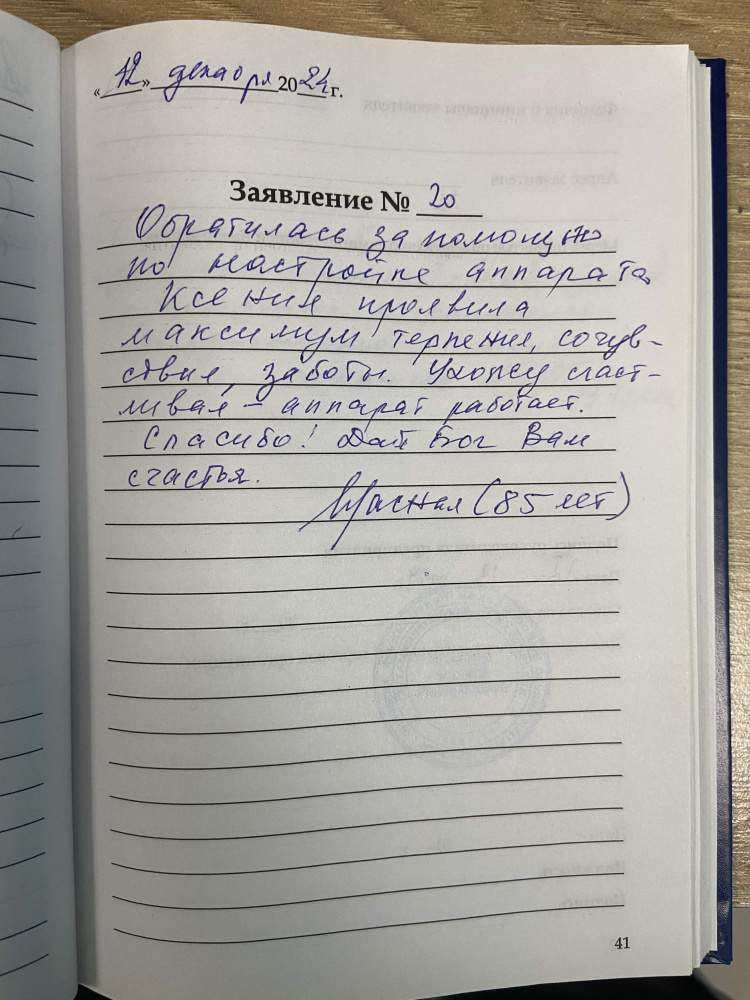 «12» декабря 2024 г.
Заявление № 20
Обратилась за помощью
по настройке аппарата.
Ксения проявила
максимум терпения, сочув-
ствия, заботы. Ухожу счаст-
ливая – аппарат работает.
Спасибо! Дай Бог Вам
счастья.
(85 лет)
41